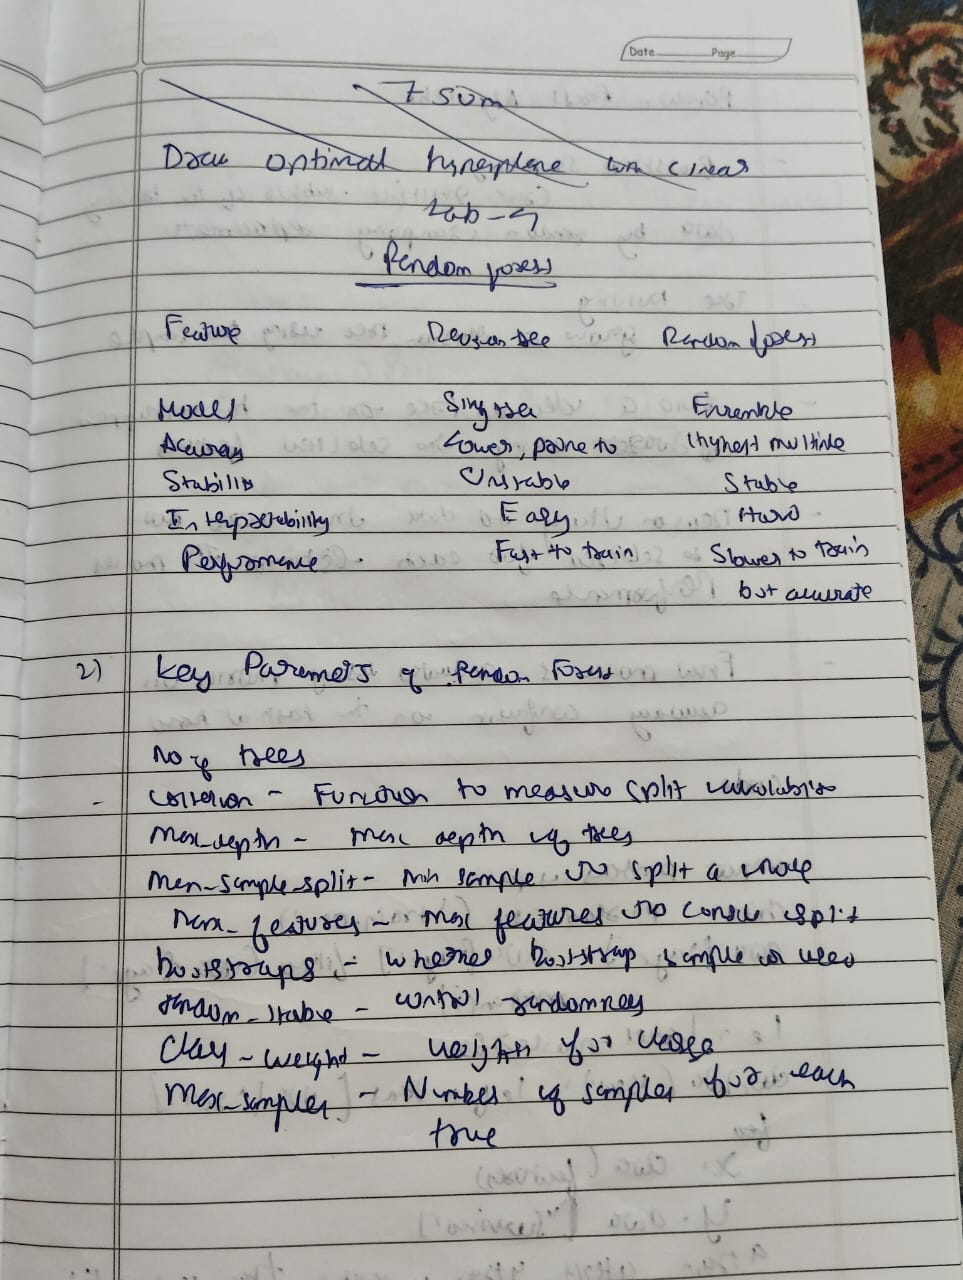 Date Page
7 SVM
Draw optimal hyperplane with clear
Lab-4
Random forest
Feature Decision tree Random forest
Model Single tree Ensemble
Accuracy Lower, prone to highest multiple
Stability Unstable Stable
Interpretability Easy Hard
Performance Fast to train Slower to train
but accurate
2) Key Parameters of Random Forest
No of trees
- Criterion - Function to measure split
Max_depth - Max depth of trees
Men-Sample-split - min sample to split a node
Max_features - max features to consider split
bootstraps - whether bootstrap sample is used
random_stable - control randomness
Class - weight - weights for
Max_samples - Number of samples for each
true